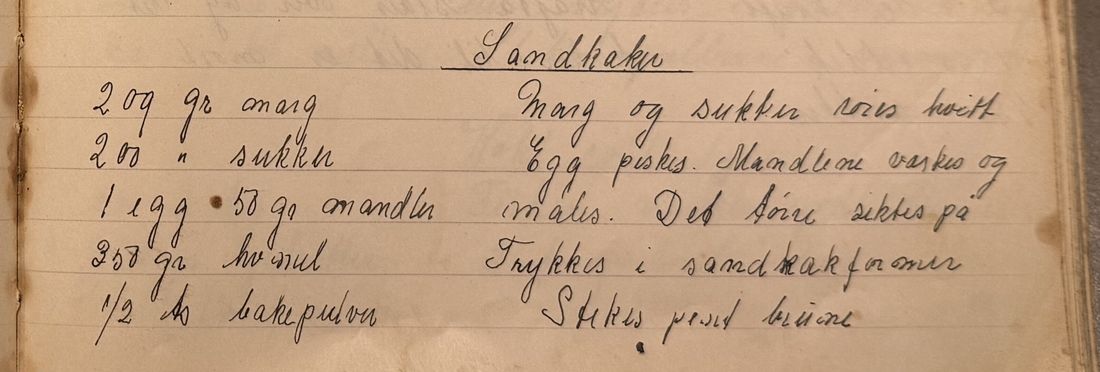 Sandkaker
200 gr marg
200 " sukker
1 egg 50 gr mandler
350 gr hvmel
1/2 ts bakepulver
Marg og sukker røres hvitt
Egg piskes. Mandlene vaskes og
males. Det tørre siktes på
Trykkes i sandkakformer
Stekes pent brune